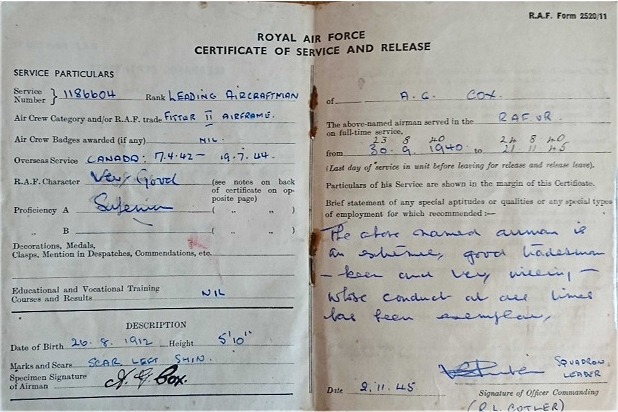 R.A.F. Form 2520/11
ROYAL AIR FORCE
CERTIFICATE OF SERVICE AND RELEASE
SERVICE PARTICULARS
Service Number } 1186604 Rank LEADING AIRCRAFTMAN
Air Crew Category and/or R.A.F. trade FITTER II AIRFRAME.
Air Crew Badges awarded (if any) NIL
Overseas Service CANADA: 7.4.42 – 19.7.44.
R.A.F. Character Very Good (see notes on back of certificate on opposite page)
Proficiency A Superior ( „ „ )
„ B ( „ „ )
Decorations, Medals,
Clasps, Mention in Despatches, Commendations, etc.
Educational and Vocational Training
Courses and Results NIL
DESCRIPTION
Date of Birth 26.8.1912 Height 5'10"
Marks and Scars SCAR LEFT SHIN.
Specimen Signature
of Airman A G Cox.
of A. G. COX.
The above-named airman served in the RAFVR
on full-time service,
23 8 40 24 8 40
from 30.9.1940 to 21 11 45
(Last day of service in unit before leaving for release and release leave).
Particulars of his Service are shown in the margin of this Certificate.
Brief statement of any special aptitudes or qualities or any special types
of employment for which recommended :—
The above named airman is
an extremely good tradesman
– keen and very willing –
whose conduct at all times
has been exemplary
SQUADRON
LEADER
Date 2.11.45 Signature of Officer Commanding
(R.L. COTLER)